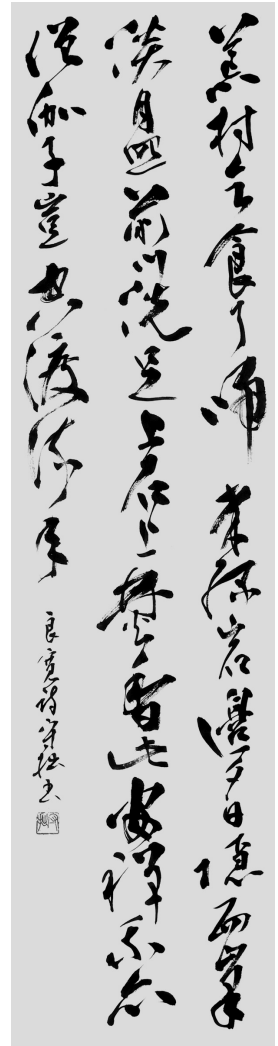 荒村乞食了帰来緑岩邊夕日隠西峯
淡月照前川洗足上石上焚香此安禅我亦
僧伽子豈空渡流年
良寛詩守拙書